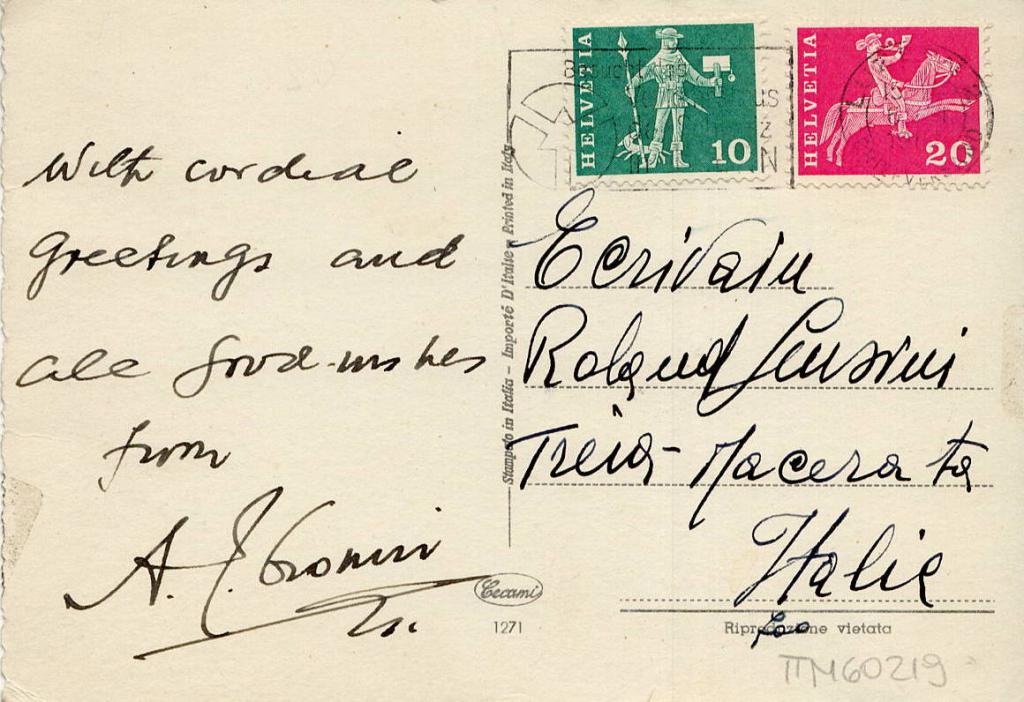 With cordial
greetings and
all good-wishes
from
A. J. Cronin
HELVETIA
10
HELVETIA
20
Stampato in Italia - Importé D'Italie - Printed in Italy
Ecrivain
Roland
Treia - Macerata
Italie
Cecami
1271
Riproduzione vietata
TTM60219